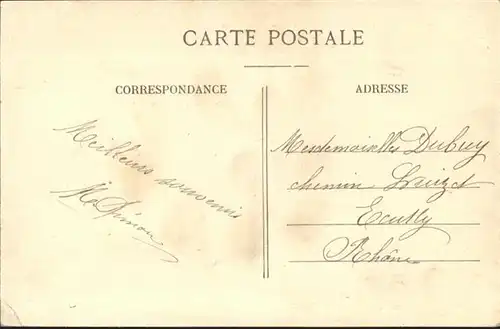 CARTE POSTALE
CORRESPONDANCE
ADRESSE
Meilleurs souvenirs
Mesdemoiselles Dubuy
chemin
Ecully
Rhône